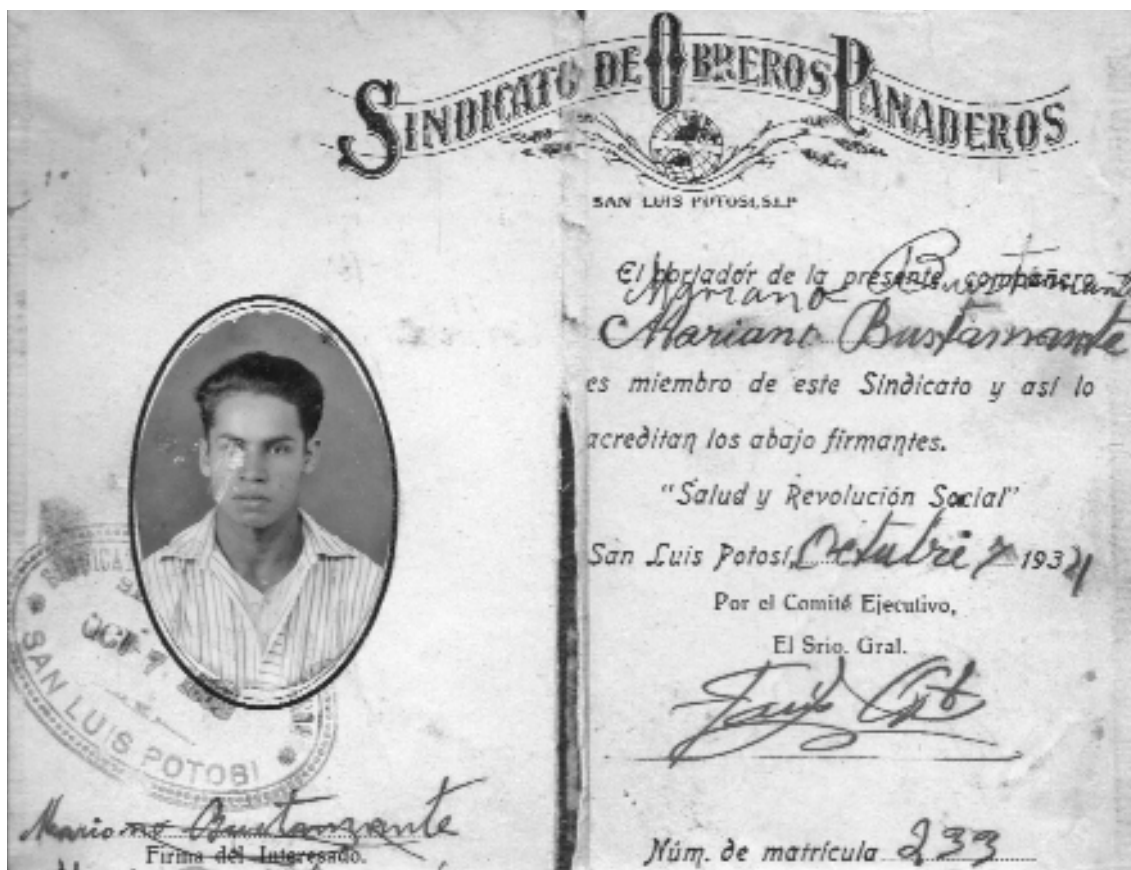 SINDICATO DE OBREROS PANADEROS
SAN LUIS POTOSI, S.L.P
El portador de la presente, compañero
Mariano Bustamante
Mariano Bustamante
es miembro de este Sindicato y así lo
acreditan los abajo firmantes.
"Salud y Revolución Social"
San Luis Potosí, Octubre 7 1934
Por el Comité Ejecutivo,
El Srio. Gral.
Núm. de matrícula 233
OCT 7
SAN LUIS POTOSI
Mariano Bustamante
Firma del Interesado.